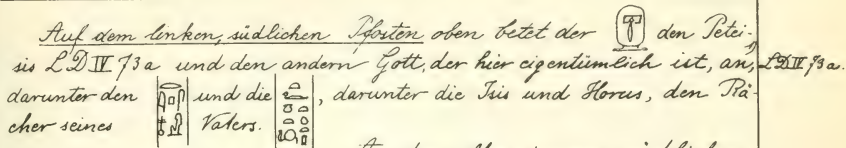 Auf dem linken, südlichen Pfosten oben betet der den Petei-
sis LD IV 73a und den andern Gott, der hier eigentümlich ist, an, LD IV 73a.
darunter den und die , darunter die Isis und Horus, den Rä-
cher seines Vaters.